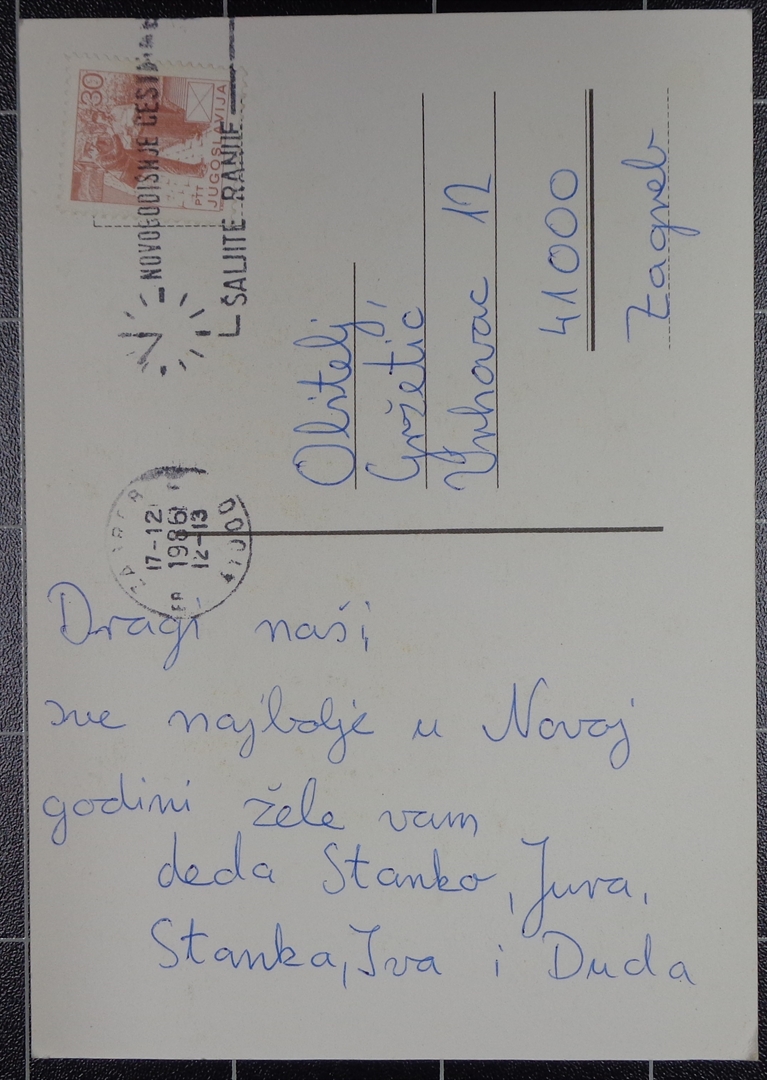 30
PTT
JUGOSLAVIJA
NOVOGODIŠNJE ČESTITKE
ŠALJITE RANIJE
17-12
1986
12-13
41000
Obitelj
Gržetić,
Vrhovac 12
41000
Zagreb
Dragi naši,
sve najbolje u Novoj
godini žele vam
deda Stanko, Jura,
Stanka, Iva i Duda